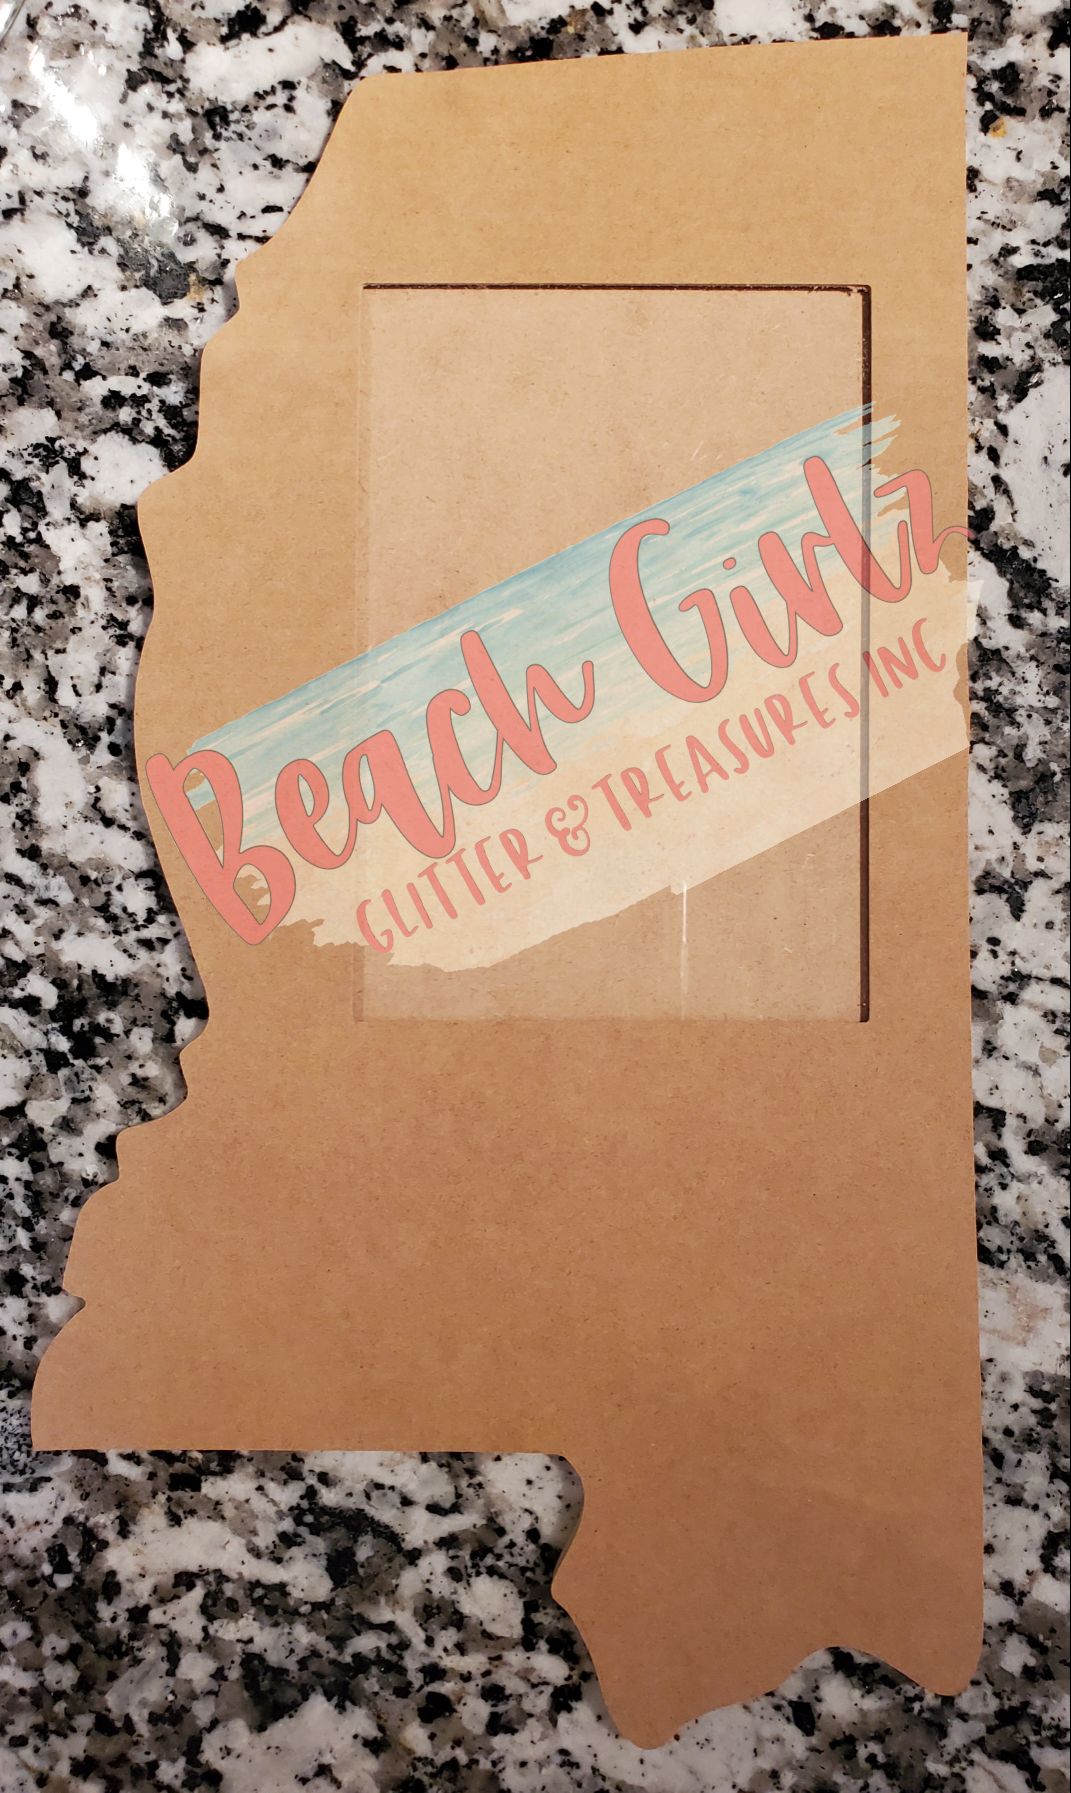 Beach Girlz
GLITTER & TREASURES INC